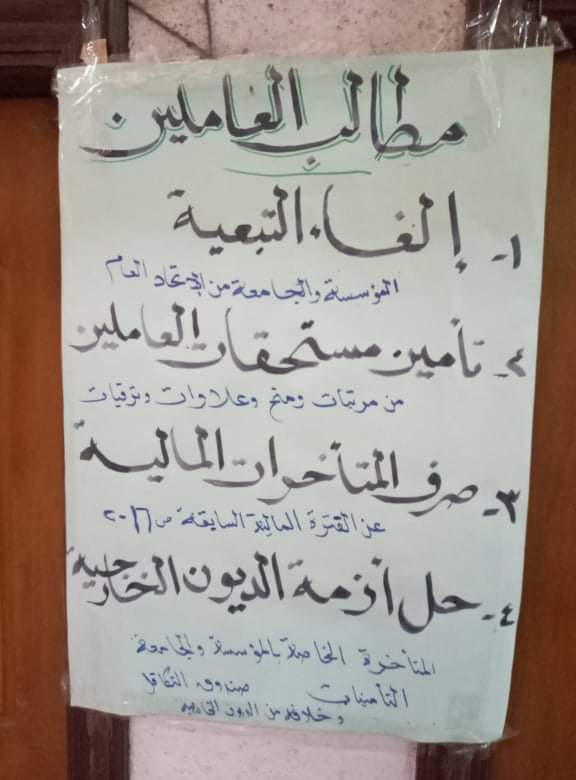 مطالب العاملين
١- إلغاء التبعية
المؤسسة والجامعة من الإتحاد العام
٢- تأمين مستحقات العاملين
من مرتبات ومنح وعلاوات وترقيات
٣- صرف المتأخرات المالية
عن الفترة المالية السابقة من ٢٠١٦
٤- حل أزمة الديون الخارجية
المتأخرة الخاصة بالمؤسسة والجامعة
التأمينات صندوق التكافل
وخلافه من الديون الخارجية